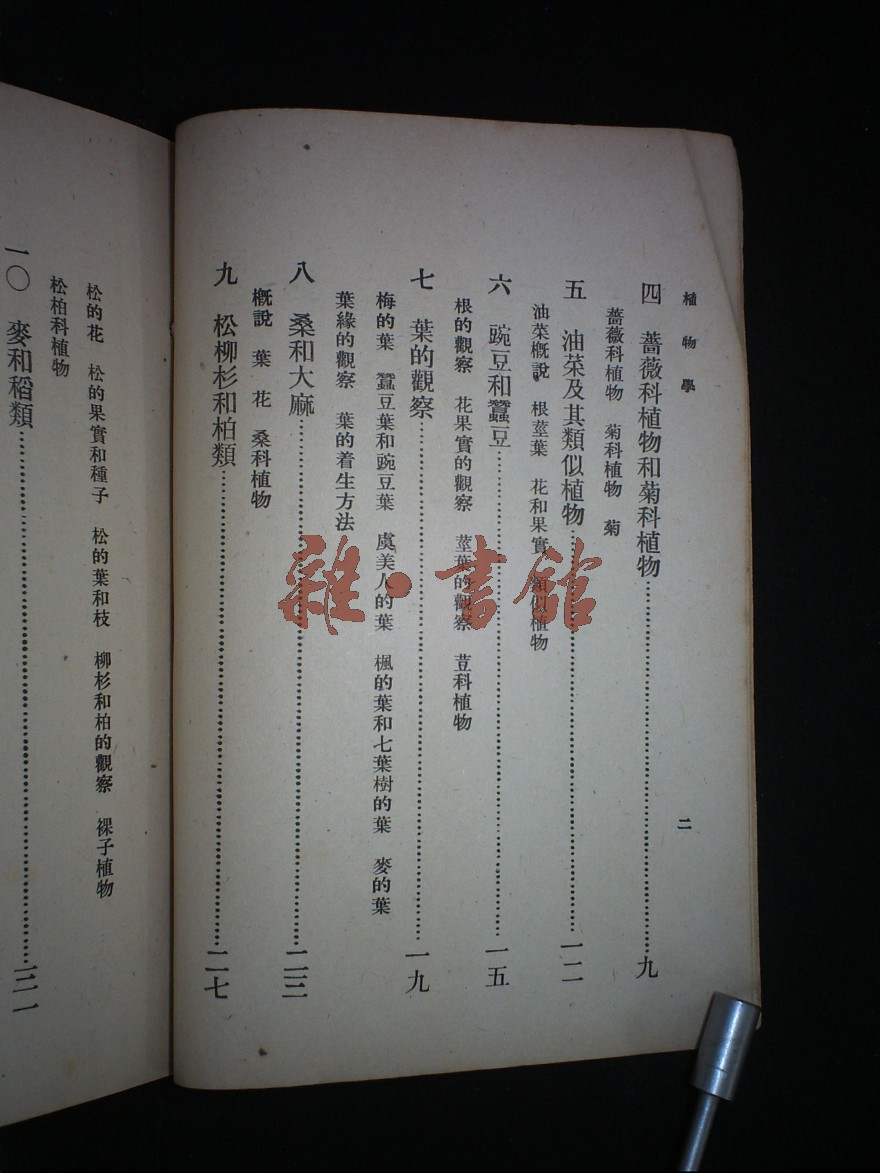 植物學
二
四 薔薇科植物和菊科植物……九
薔薇科植物 菊科植物 菊
五 油菜及其類似植物……一二
油菜概說 根莖葉 花和果實 類似植物
六 豌豆和蠶豆……一五
根的觀察 花果實的觀察 莖葉的觀察 荳科植物
七 葉的觀察……一九
梅的葉 蠶豆葉和豌豆葉 虞美人的葉 楓的葉和七葉樹的葉 麥的葉
葉緣的觀察 葉的着生方法
八 桑和大麻……二三
概說 葉 花 桑科植物
九 松柳杉和柏類……二七
松的花 松的果實和種子 松的葉和枝 柳杉和柏的觀察 裸子植物
松柏科植物
一〇 麥和稻類……三一
雜·書館